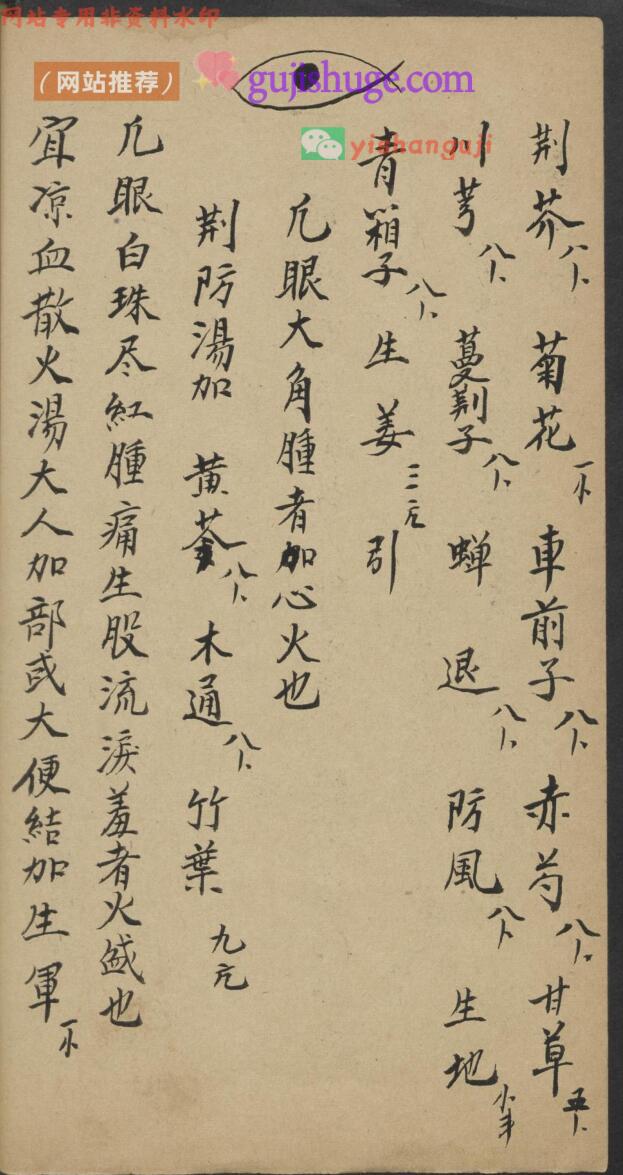 网站专用非资料水印
(网站推荐)
gujishuge.com
yishanguji
荆芥八卜 菊花 車前子八卜 赤芍八卜 甘草五卜
川芎八卜 蔓荆子八卜 蝉退八卜 防風八卜 生地
青箱子八卜 生姜三亢引
凡眼大角腫者加心火也
荆防湯加 黄芩八卜 木通八卜 竹葉九亢
凡眼白珠尽紅腫痛生股流淚羞者火盛也
宜凉血散火湯大人加部或大便結加生軍